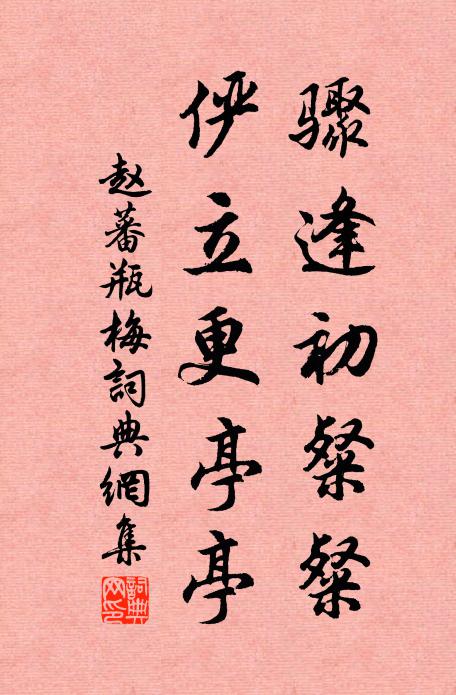 骤逢初粲粲
俜立更亭亭
赵蕃瓶梅詞典網集
詞典网印